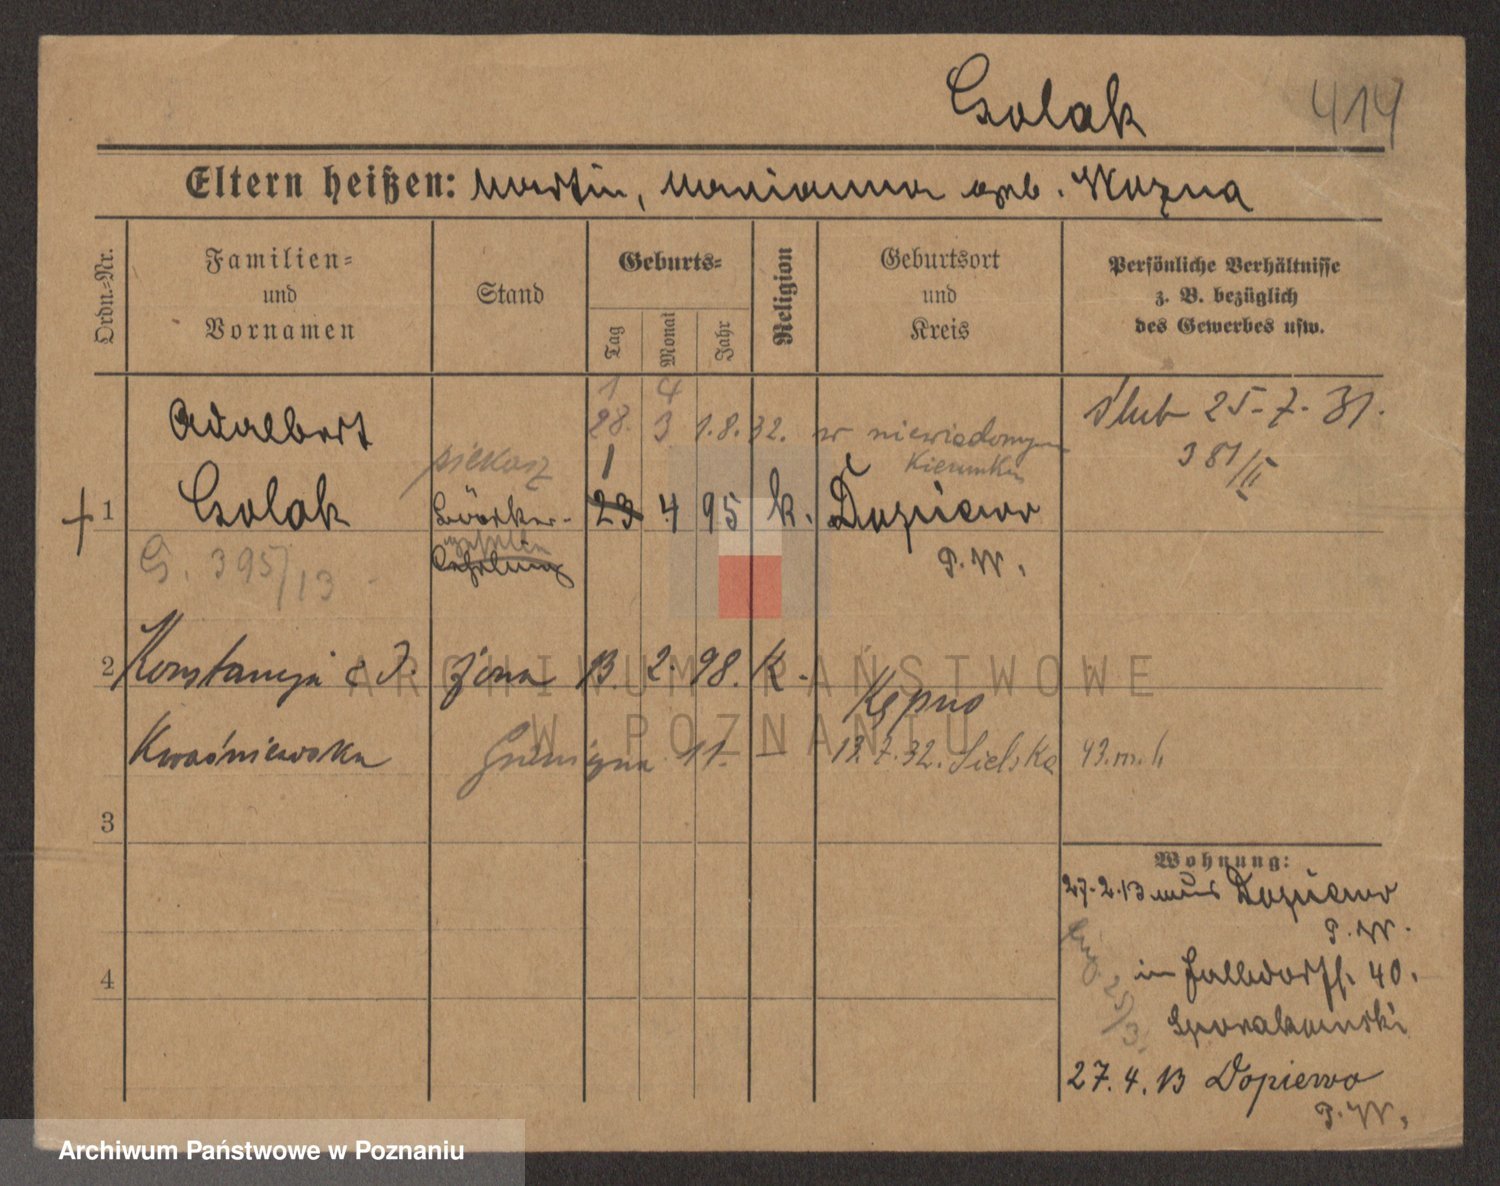 Csolak 414
Eltern heißen: Martin, Marianna geb. Wozna
Ordn.-Nr.
Familien-
und
Vornamen
Stand
Geburts-
Tag
Monat
Jahr
Religion
Geburtsort
und
Kreis
Persönliche Verhältnisse
z. B. bezüglich
des Gewerbes usw.
1 4
28. 3 1.8.32. w niewiadomym
kierunku
ślub 25-7-31.
381/II
Adalbert
piekarz 1
1 Csolak Bäcker- 23 4 95 k. Dopiewo
gehilfe
P.W.
G. 395/13
2 Konstancja c. J. żona 13. 2. 98. k. Kępno
Kwaśniewska 11. 13.7.32. Sielska 43 m. 4
3
4
Wohnung:
27.2.13 aus Dopiewo
P.W.
in Halldorffstr. 40.
25/3.
27.4.13 Dopiewo
P.W.
ARCHIWUM PAŃSTWOWE
W POZNANIU
Archiwum Państwowe w Poznaniu